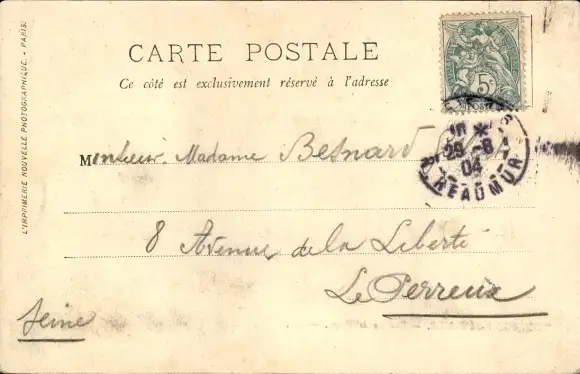 CARTE POSTALE
Ce côté est exclusivement réservé à l'adresse
Monsieur, Madame Besnard
8 Avenue de la Liberté
Le Perreux
Seine
5c
POSTE
29-8
04
REAUMUR
L'IMPRIMERIE NOUVELLE PHOTOGRAPHIQUE. - PARIS.